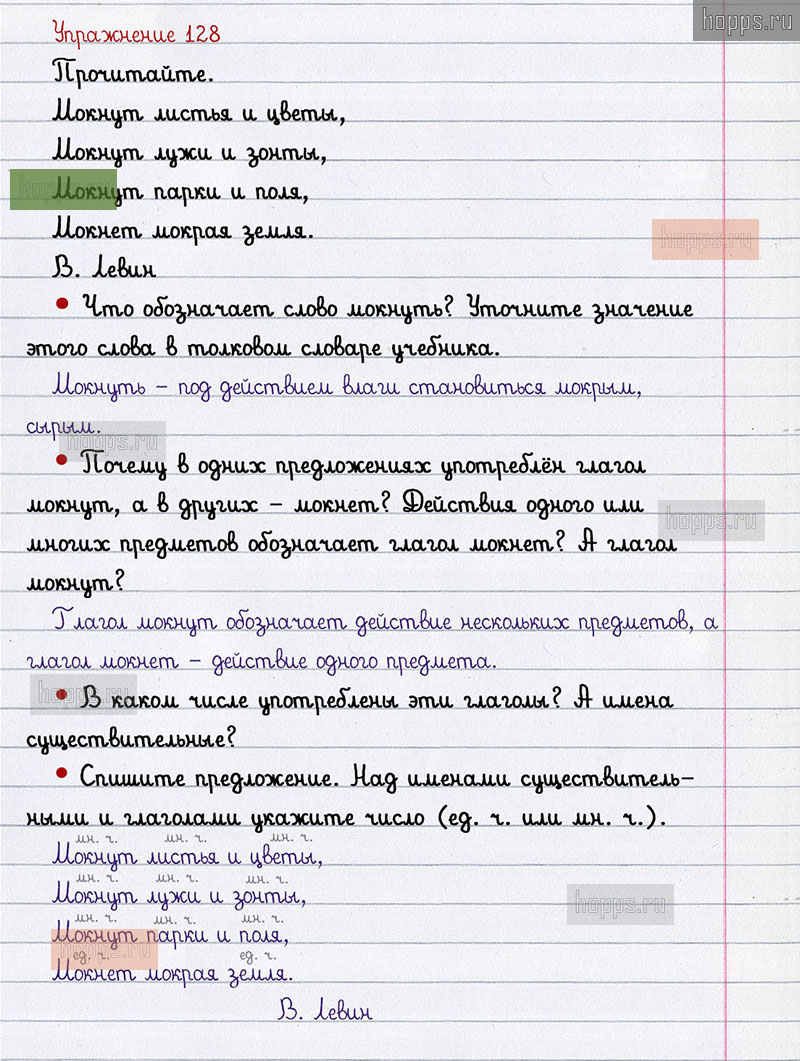 hopps.ru
Упражнение 128
Прочитайте.
Мокнут листья и цветы,
Мокнут лужи и зонты,
hopps.ru
Мокнут парки и поля,
Мокнет мокрая земля.
hopps.ru
В. Левин
• Что обозначает слово мокнуть? Уточните значение
этого слова в толковом словаре учебника.
Мокнуть – под действием влаги становиться мокрым,
сырым.
hopps.ru
• Почему в одних предложениях употреблён глагол
мокнут, а в других – мокнет? Действия одного или
hopps.ru
многих предметов обозначает глагол мокнет? А глагол
мокнут?
Глагол мокнут обозначает действие нескольких предметов, а
глагол мокнет – действие одного предмета.
hopps.ru
• В каком числе употреблены эти глаголы? А имена
существительные?
• Спишите предложение. Над именами существитель–
ными и глаголами укажите число (ед. ч. или мн. ч.).
мн. ч. мн. ч. мн. ч.
Мокнут листья и цветы,
мн. ч. мн. ч. мн. ч.
Мокнут лужи и зонты,
hopps.ru
мн. ч. мн. ч. мн. ч.
Мокнут парки и поля,
hopps.ru
ед. ч. ед. ч.
Мокнет мокрая земля.
В. Левин